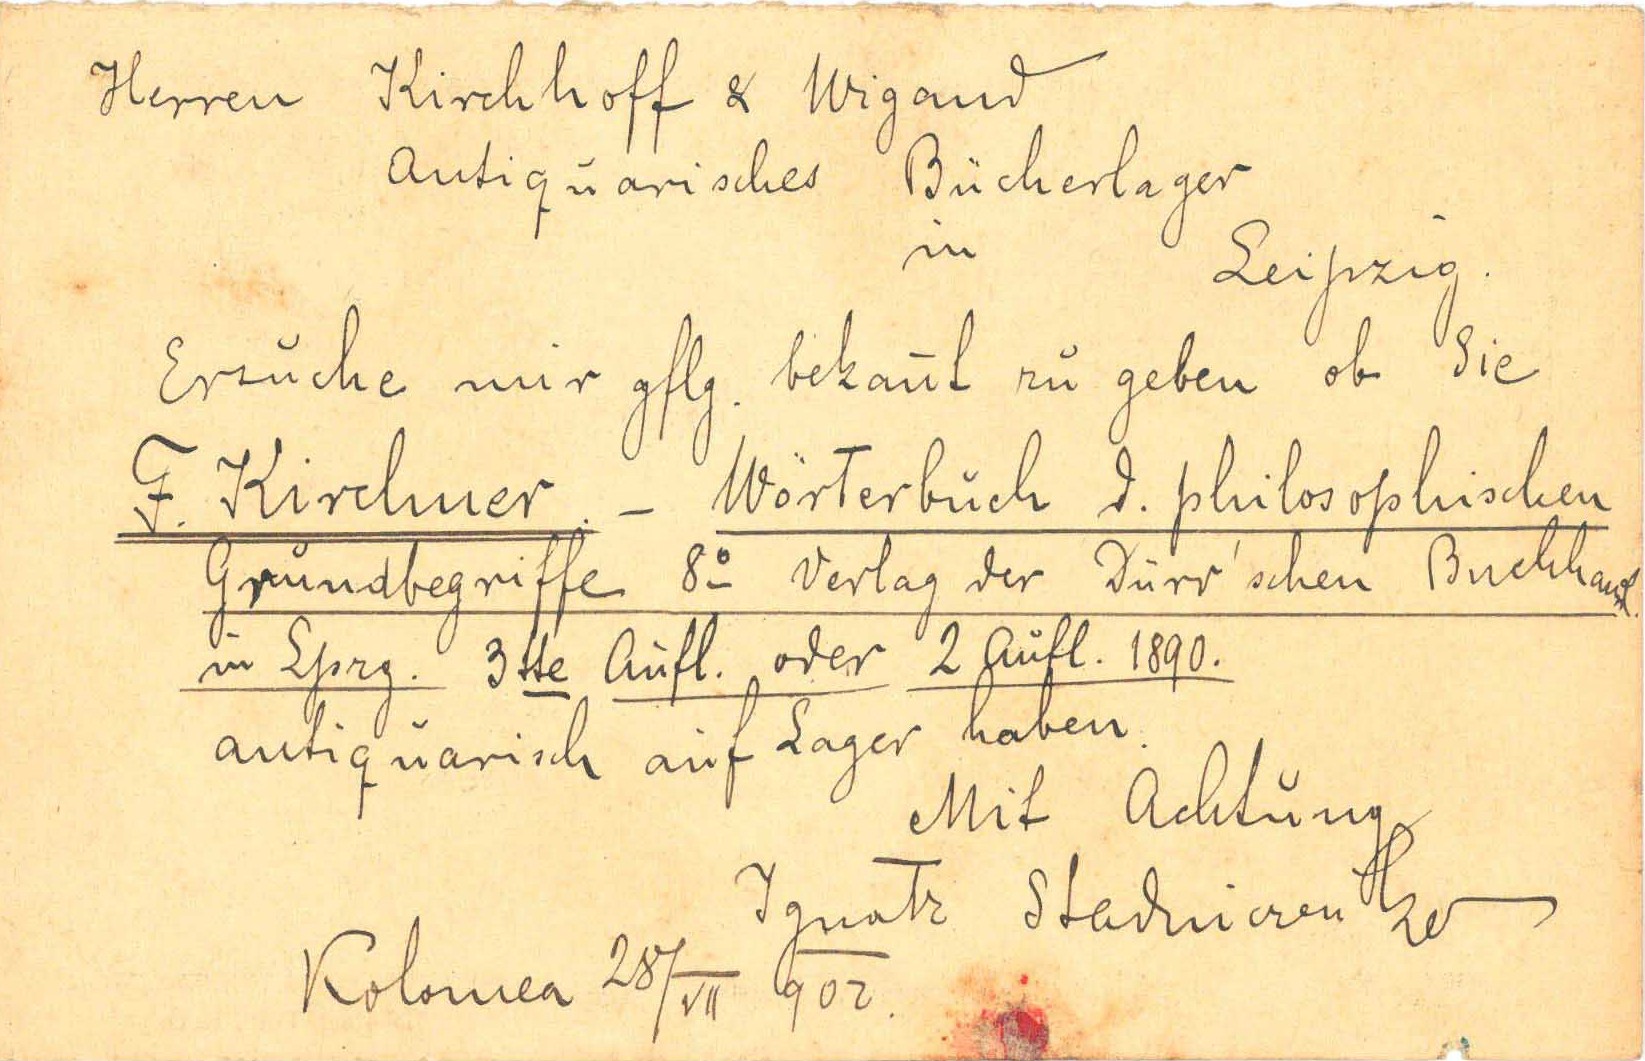 Herren Kirchhoff & Wigand
Antiquarisches Bücherlager
in Leipzig.
Ersuche mir gflg. bekan̄t zu geben ob Sie
F. Kirchner. – Wörterbuch d. philosophischen
Grundbegriffe 8º Verlag der Dürr'schen Buchhandl.
in Lpzg. 3tte Aufl. oder 2 Aufl. 1890.
antiquarisch auf Lager haben.
Mit Achtung
Ignatz
Kolomea 28/VII 902.